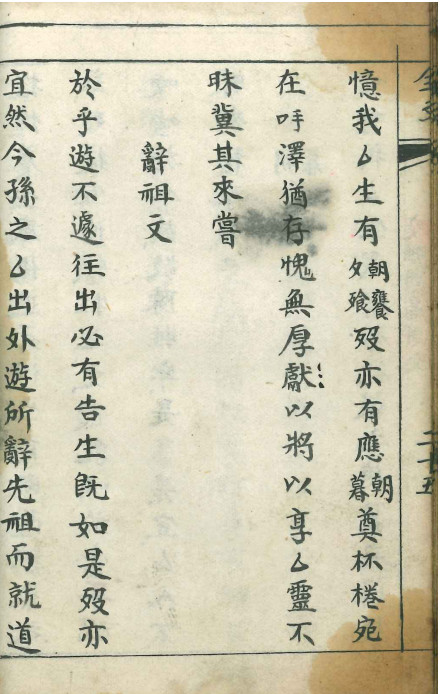 二十五
憶我厶生有朝饔夕飱歿亦有應朝暮奠杯棬宛
在吁澤猶存愧無厚獻以將以享厶靈不
昧冀其來嘗
辭祖文
於乎遊不遽往出必有告生既如是歿亦
宜然今孫之厶出外遊所辭先祖而就道